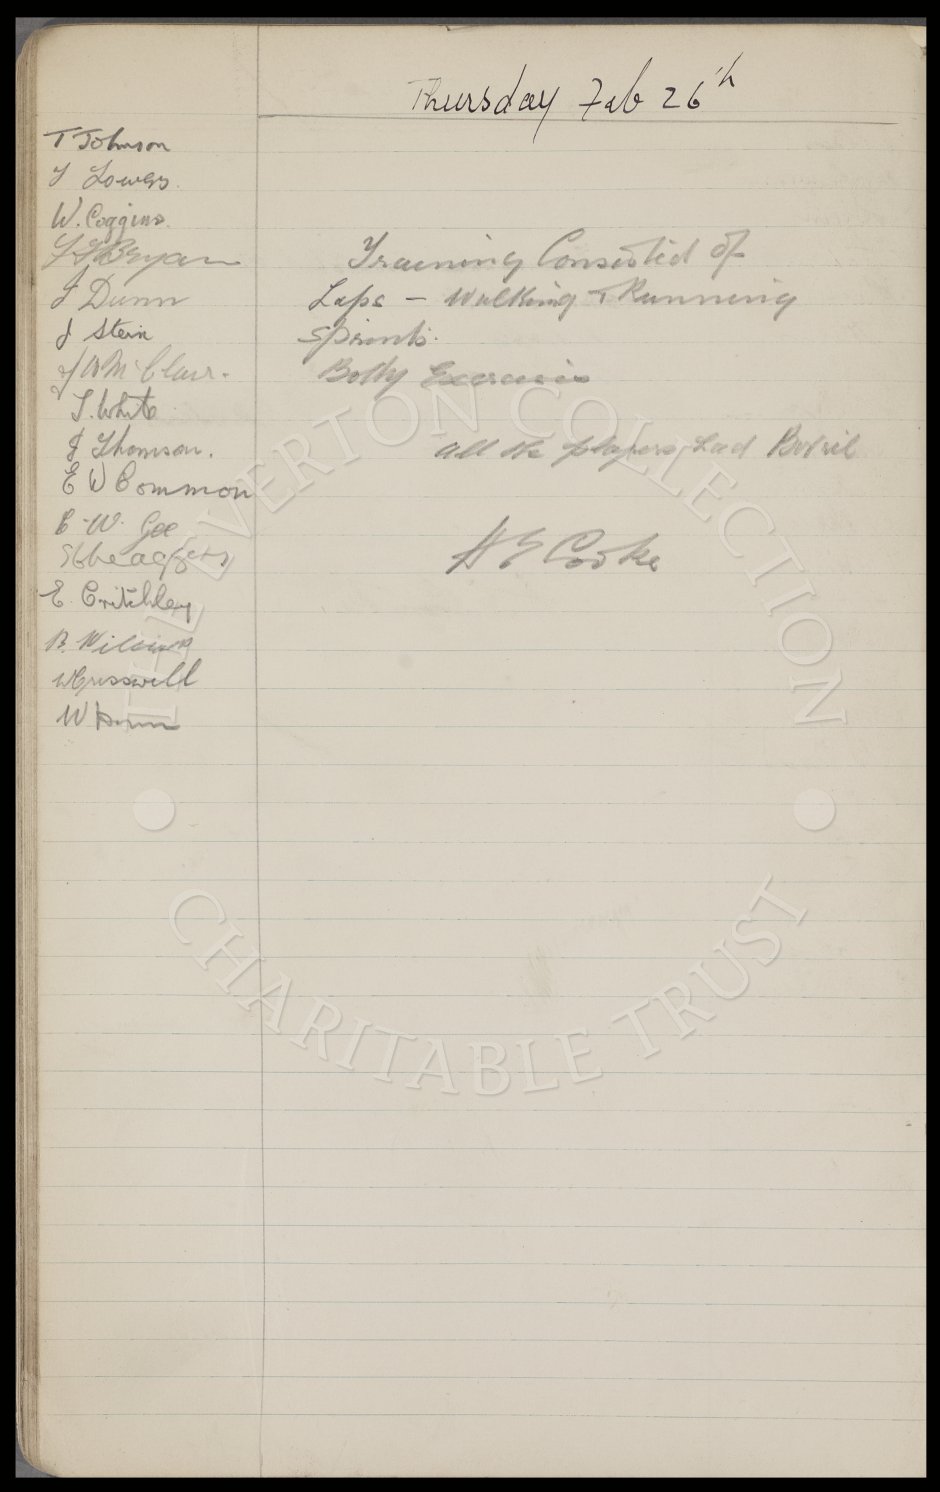 Thursday Feb 26th
T Johnson
T Lowers
W. Coggins.
Bryan
J Dunn
J Stein
J W McClure.
T. White
J Thomson.
E W Common
C. W. Gee
E. Critchley
B. Williams
W Gresswell
W Dunn
Training Consisted of
Laps - Walking + Running
Sprints.
Body Exercises
all the players had Bovril
H E Cooke
THE EVERTON COLLECTION
CHARITABLE TRUST